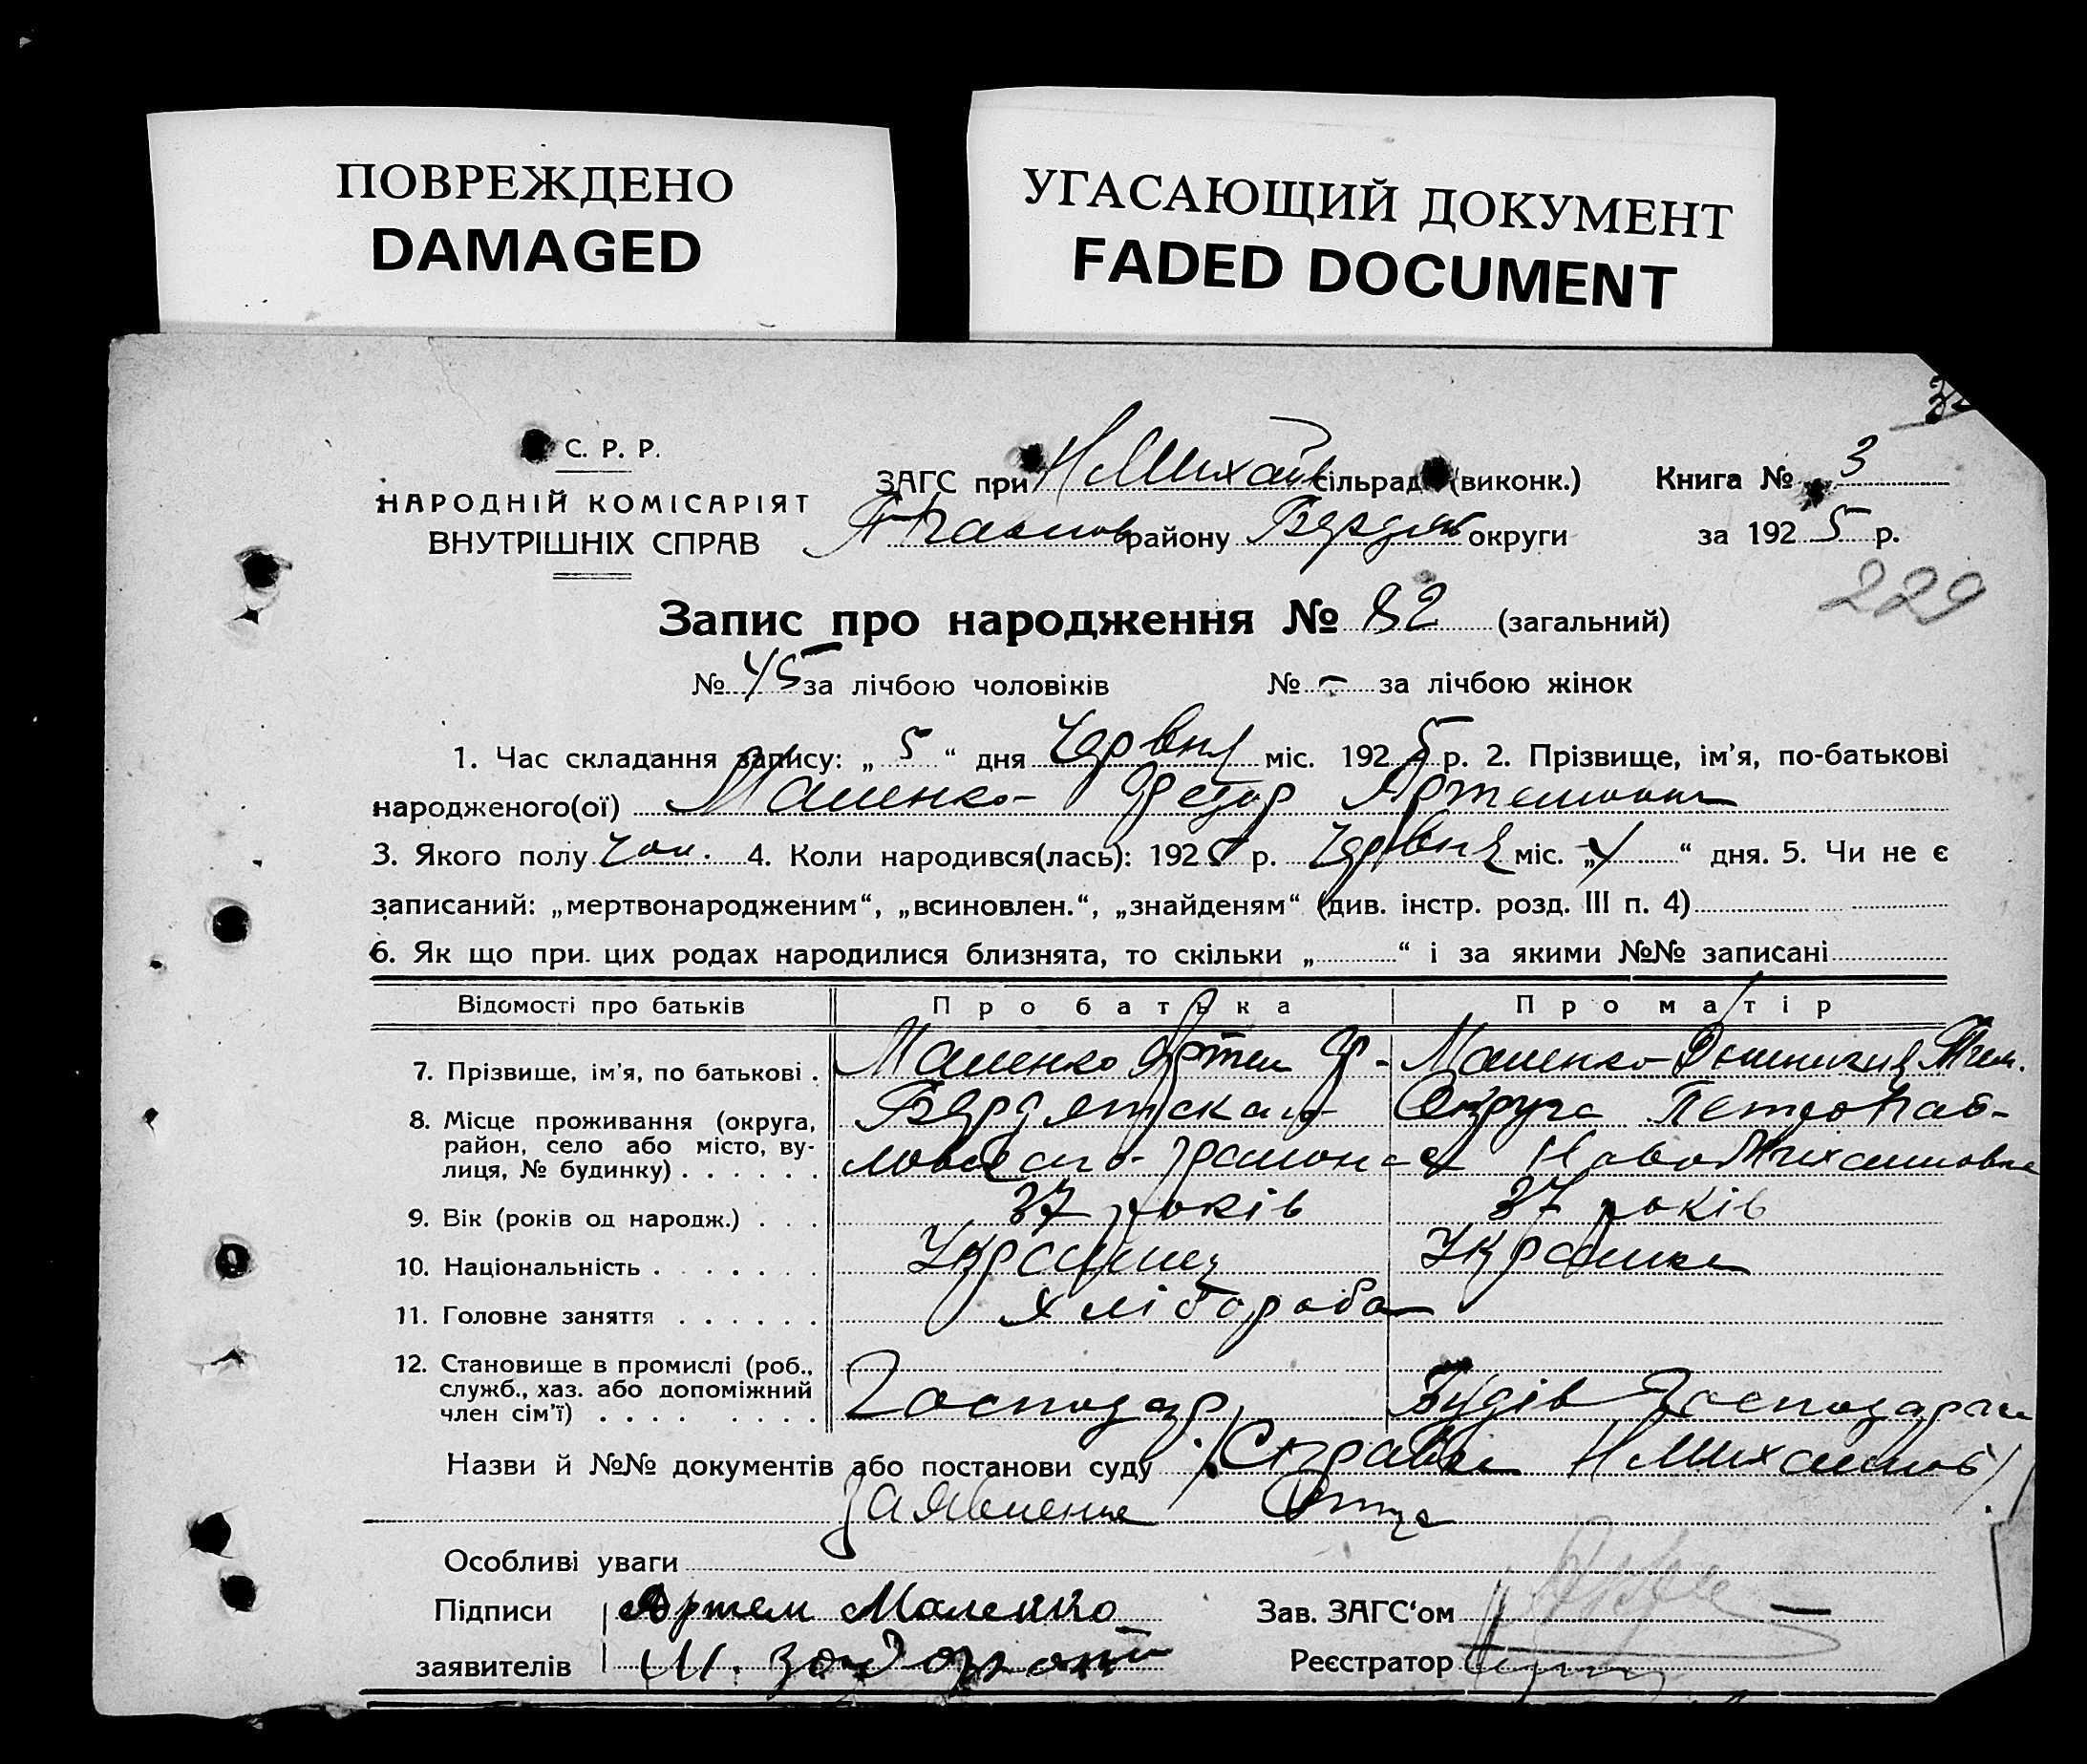 ПОВРЕЖДЕНО
DAMAGED
УГАСАЮЩИЙ ДОКУМЕНТ
FADED DOCUMENT
С. Р. Р.
НАРОДНІЙ КОМІСАРІЯТ
ВНУТРІШНІХ СПРАВ
ЗАГС при НМихайл сільрад (виконк.)
району Бердян округи
Книга № 3
за 1925 р.
229
Запис про народження № 82 (загальний)
№ 45 за лічбою чоловіків № – за лічбою жінок
1. Час складання запису: „ 5 “ дня Червня міс. 1925 р. 2. Прізвище, ім'я, по-батькові
народженого(ої) Маленко Федор Артемович
3. Якого полу чол. 4. Коли народився(лась): 1925 р. Червня міс. „4“ дня. 5. Чи не є
записаний: „мертвонародженим“, „всиновлен.“, „знайденям“ (див. інстр. розд. III п. 4)
6. Як що при цих родах народилися близнята, то скільки „ “ і за якими №№ записані
Відомості про батьків Про батька Про матір
7. Прізвище, ім'я, по батькові . Маленко Артем Ф. Маленко
8. Місце проживання (округа, район, село або місто, вулиця, № будинку) Бердянскаго Округа Петропавловскаго района с НовоМихайловка
9. Вік (років од народж.) . . . 37 років 37 років
10. Національність . . . . . . Українец Українка
11. Головне заняття . . . . . . хлібороба
12. Становище в промислі (роб., служб., хаз. або допоміжний член сім'ї) . . . . Господар Господарки
Назви й №№ документів або постанови суду Справка НМихайлов
Заявление Отца
Особливі уваги
Підписи Артем Маленко Зав. ЗАГС'ом
заявителів Реєстратор